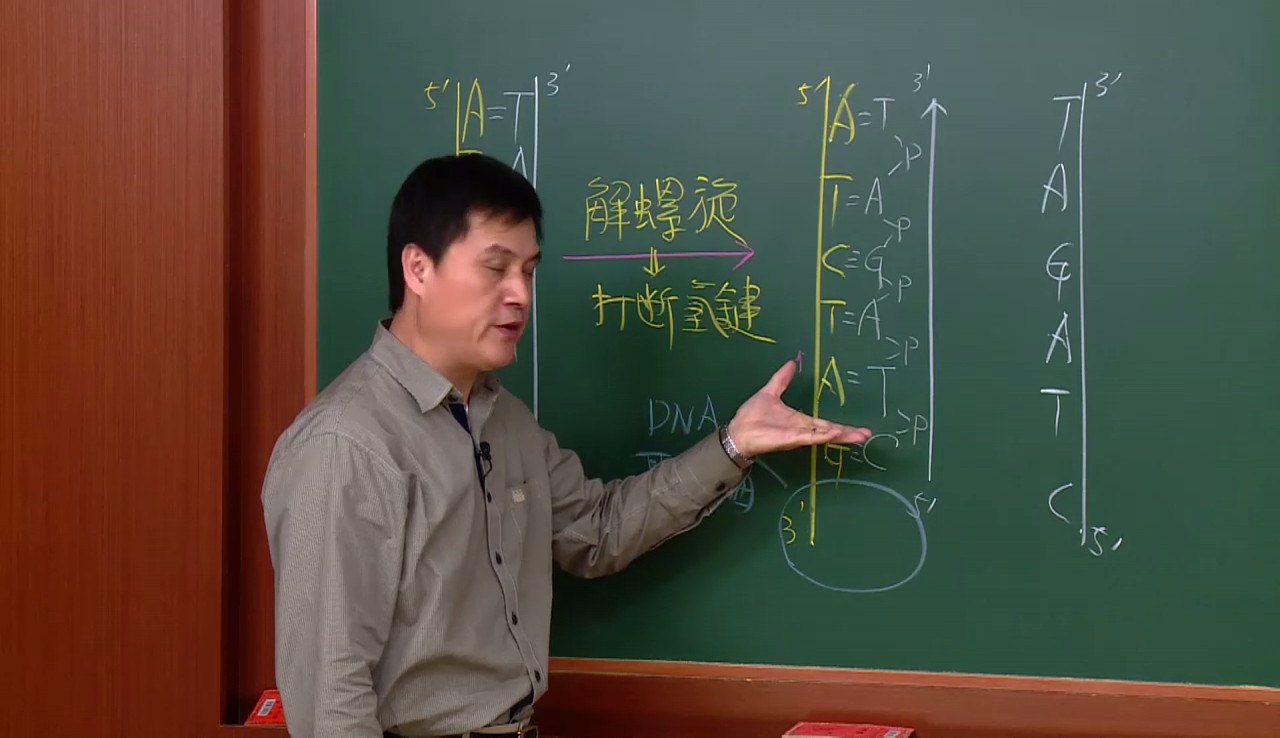 5' A=T 3'
A
解螺旋
打断氢鍵
DNA
5' A=T 3'
>P
T=A
>P
C≡G
>P
T=A
>P
A=T
>P
G≡C
3' 5'
3'
T
A
G
A
T
C
5'